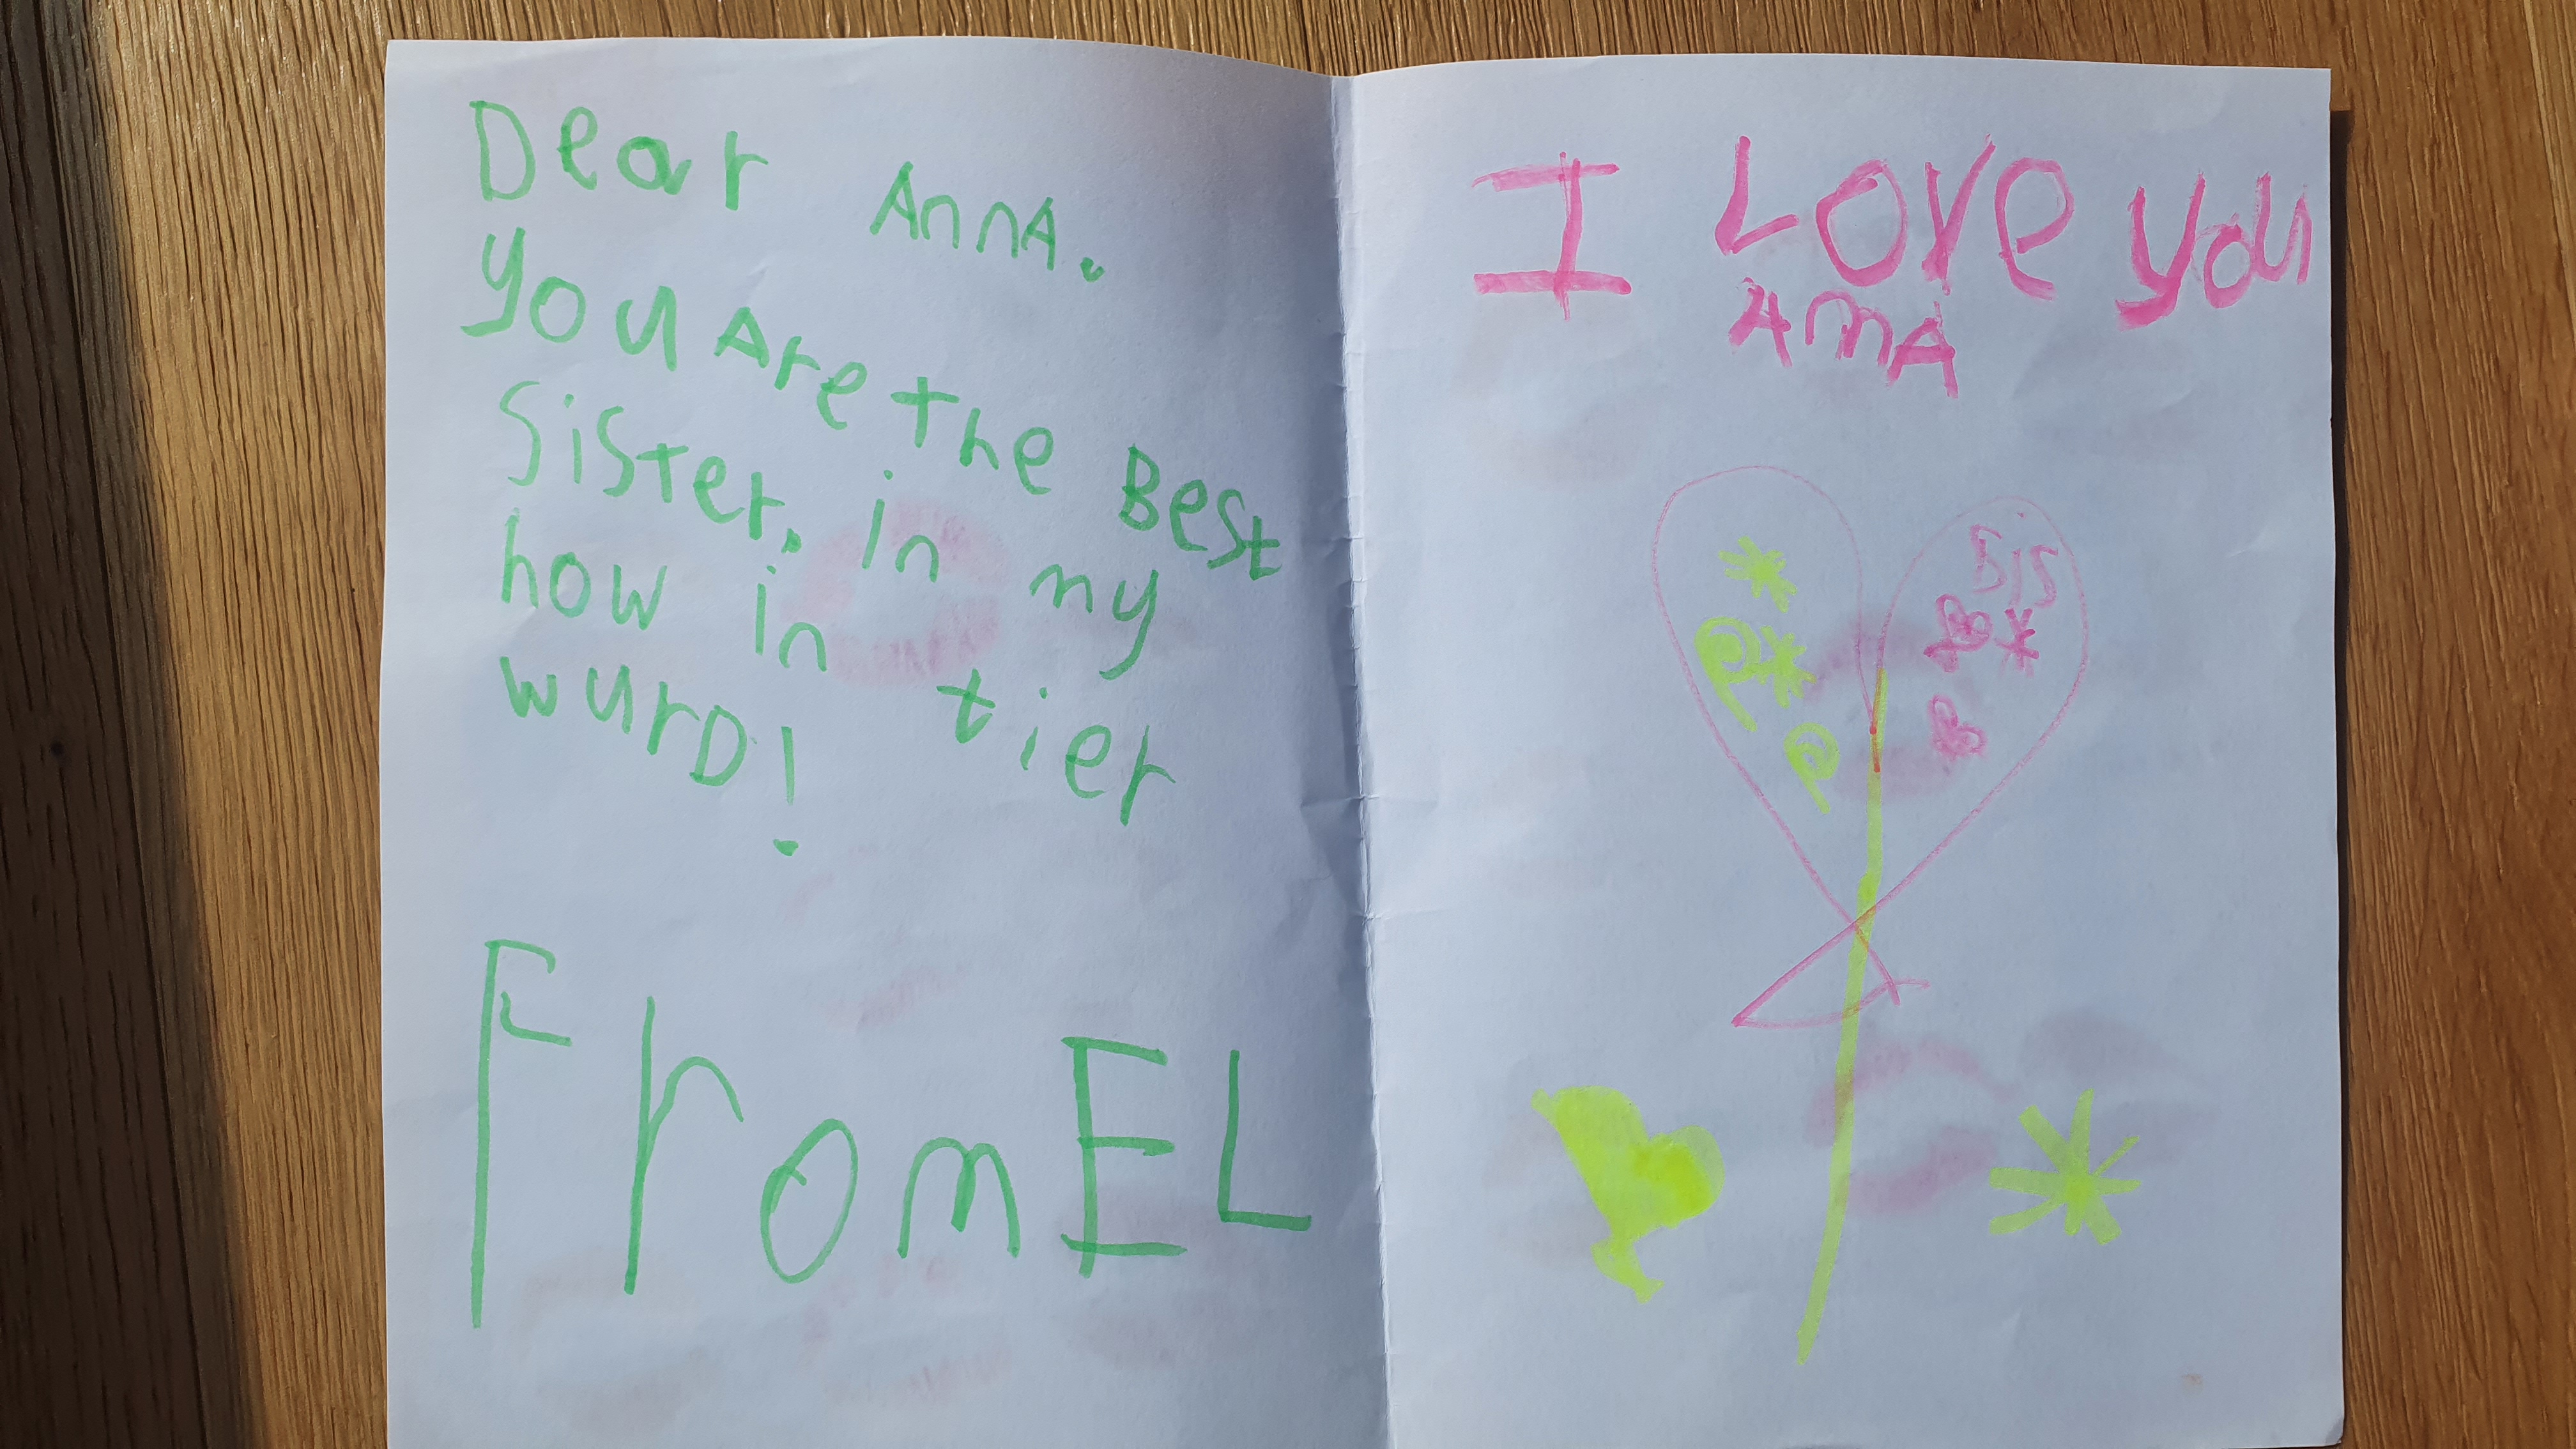 Dear AnnA.
you Are the Best
Sister, in my
how in tier
wurD!
From EL
I Love you
AnnA
SiS